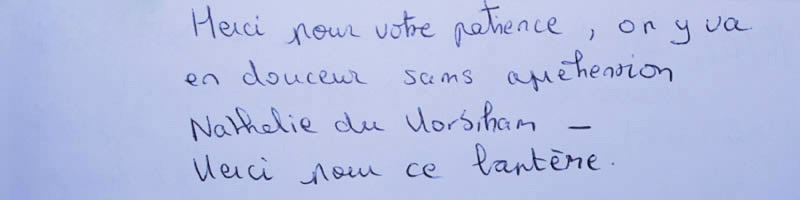 Merci pour votre patience, on y va
en douceur sans apréhension
Nathalie du Morbihan –
Merci pour ce baptême.